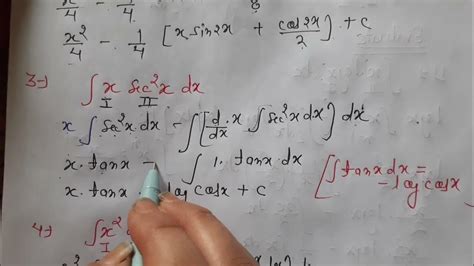 x²/4 - 1/4 [x sin2x + cos2x/2] + c
3→) ∫ x sec²x dx
I II
x ∫ sec²x. dx - ∫[d/dx .x ∫ sec²x dx] dx
x. tanx - ∫ 1. tanx dx
[∫tanx dx = - log cosx
x. tanx log cosx + c
4→) ∫ x²
I